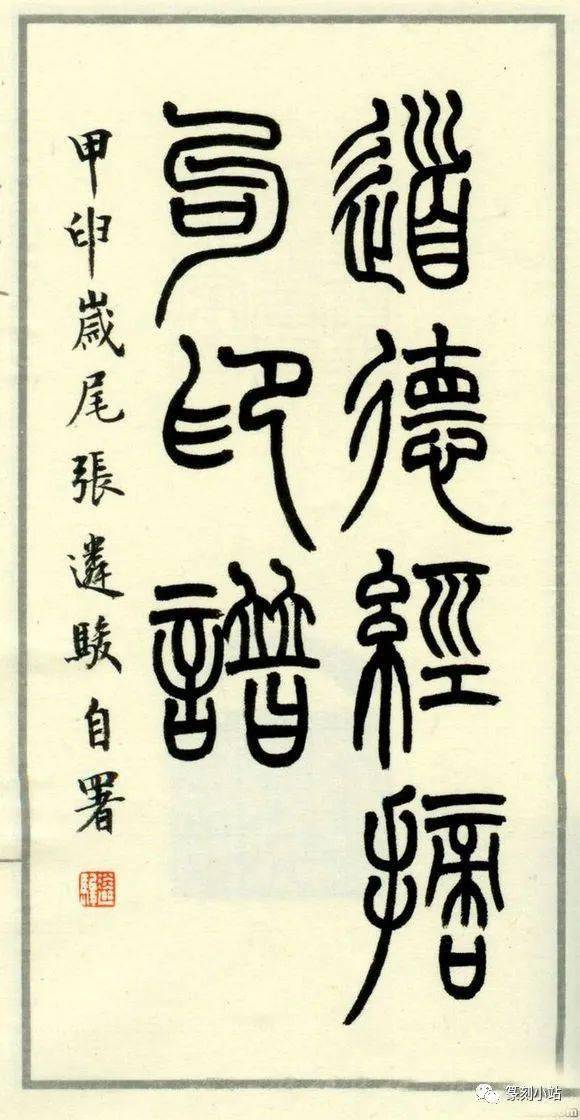 道德經摘
句印譜
甲申歲尾張遴駿自署
遴駿
篆刻小站